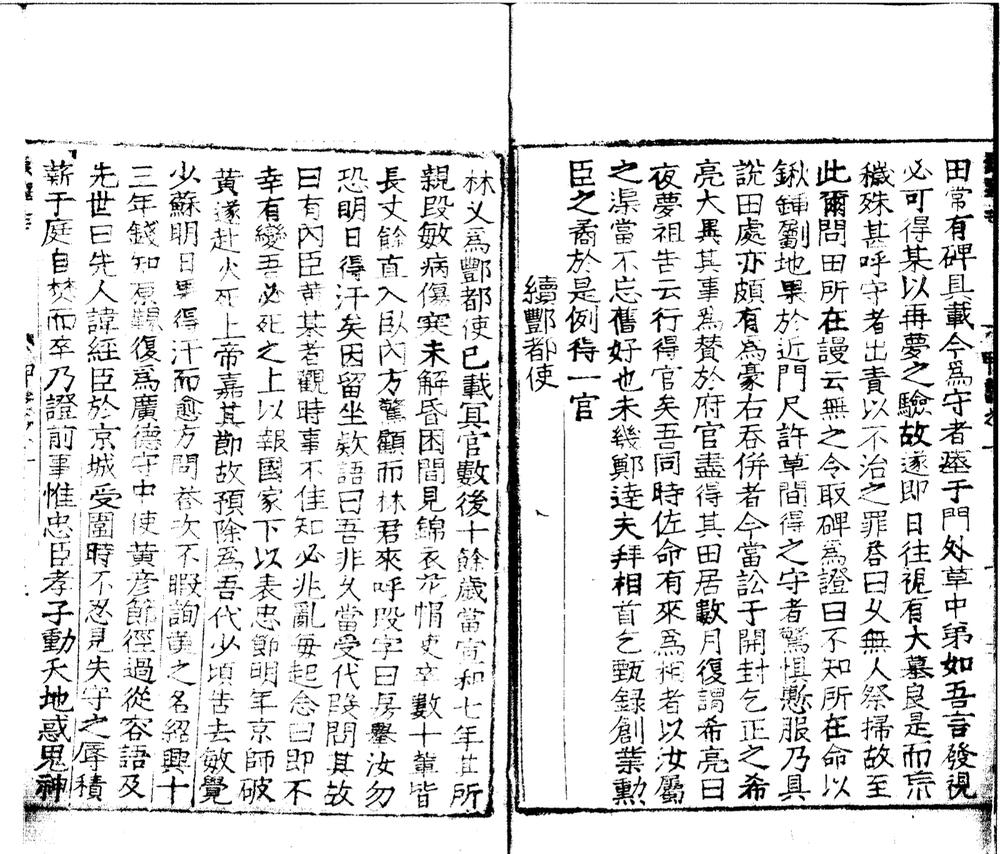 田常有碑具載今爲守者盜于門外草中第如吾言發視
必可得某以再夢之驗故遂即日往視有大墓良是而荒
穢殊甚呼守者出責以不治之罪荅曰久無人祭掃故至
此爾問田所在謾云無之令取碑爲證曰不知所在命以
鍬鍤劚地果於近門尺許草間得之守者驚懼懃服乃具
說田處亦頗有爲豪右吞併者今當訟于開封乞正之希
亮大異其事爲贊於府官盡得其田居數月復謂希亮曰
夜夢祖告云行得官矣吾同時佐命有來爲相者以汝屬
之渠當不忘舊好也未幾鄭達夫拜相首乞甄録創業勲
臣之裔於是例得一官
續酆都使
林乂爲酆都使已載冥官數後十餘歲當宣和七年其所
親段敏病傷寒未解昏困間見錦衣花㡌吏卒數十輩皆
長丈餘直入臥內方驚顧而林君來呼段字曰
恐明日得汗矣因留坐欵語曰吾非久當受代段問其故
曰有內臣黃某者觀時事不佳知必兆亂每起念曰即不
幸有變吾必死之上以報國家下以表忠節明年京師破
黃遂赴火死上帝嘉其節故預除爲吾代少頃告去敏覺
少蘇明日果得汗而愈方問荅次不暇詢黃之名紹興十
三年錢知原觀復爲廣德守中使黃彥節徑過從容語及
先世曰先人諱經臣於京城受圍時不忍見失守之辱積
薪于庭自焚而卒乃證前事惟忠臣孝子動天地惑鬼神